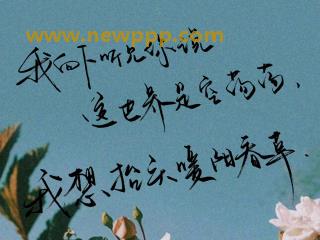 www.newppp.com
我向下听见你说
这世界是空荡荡，
我想，抬头暖阳春草．